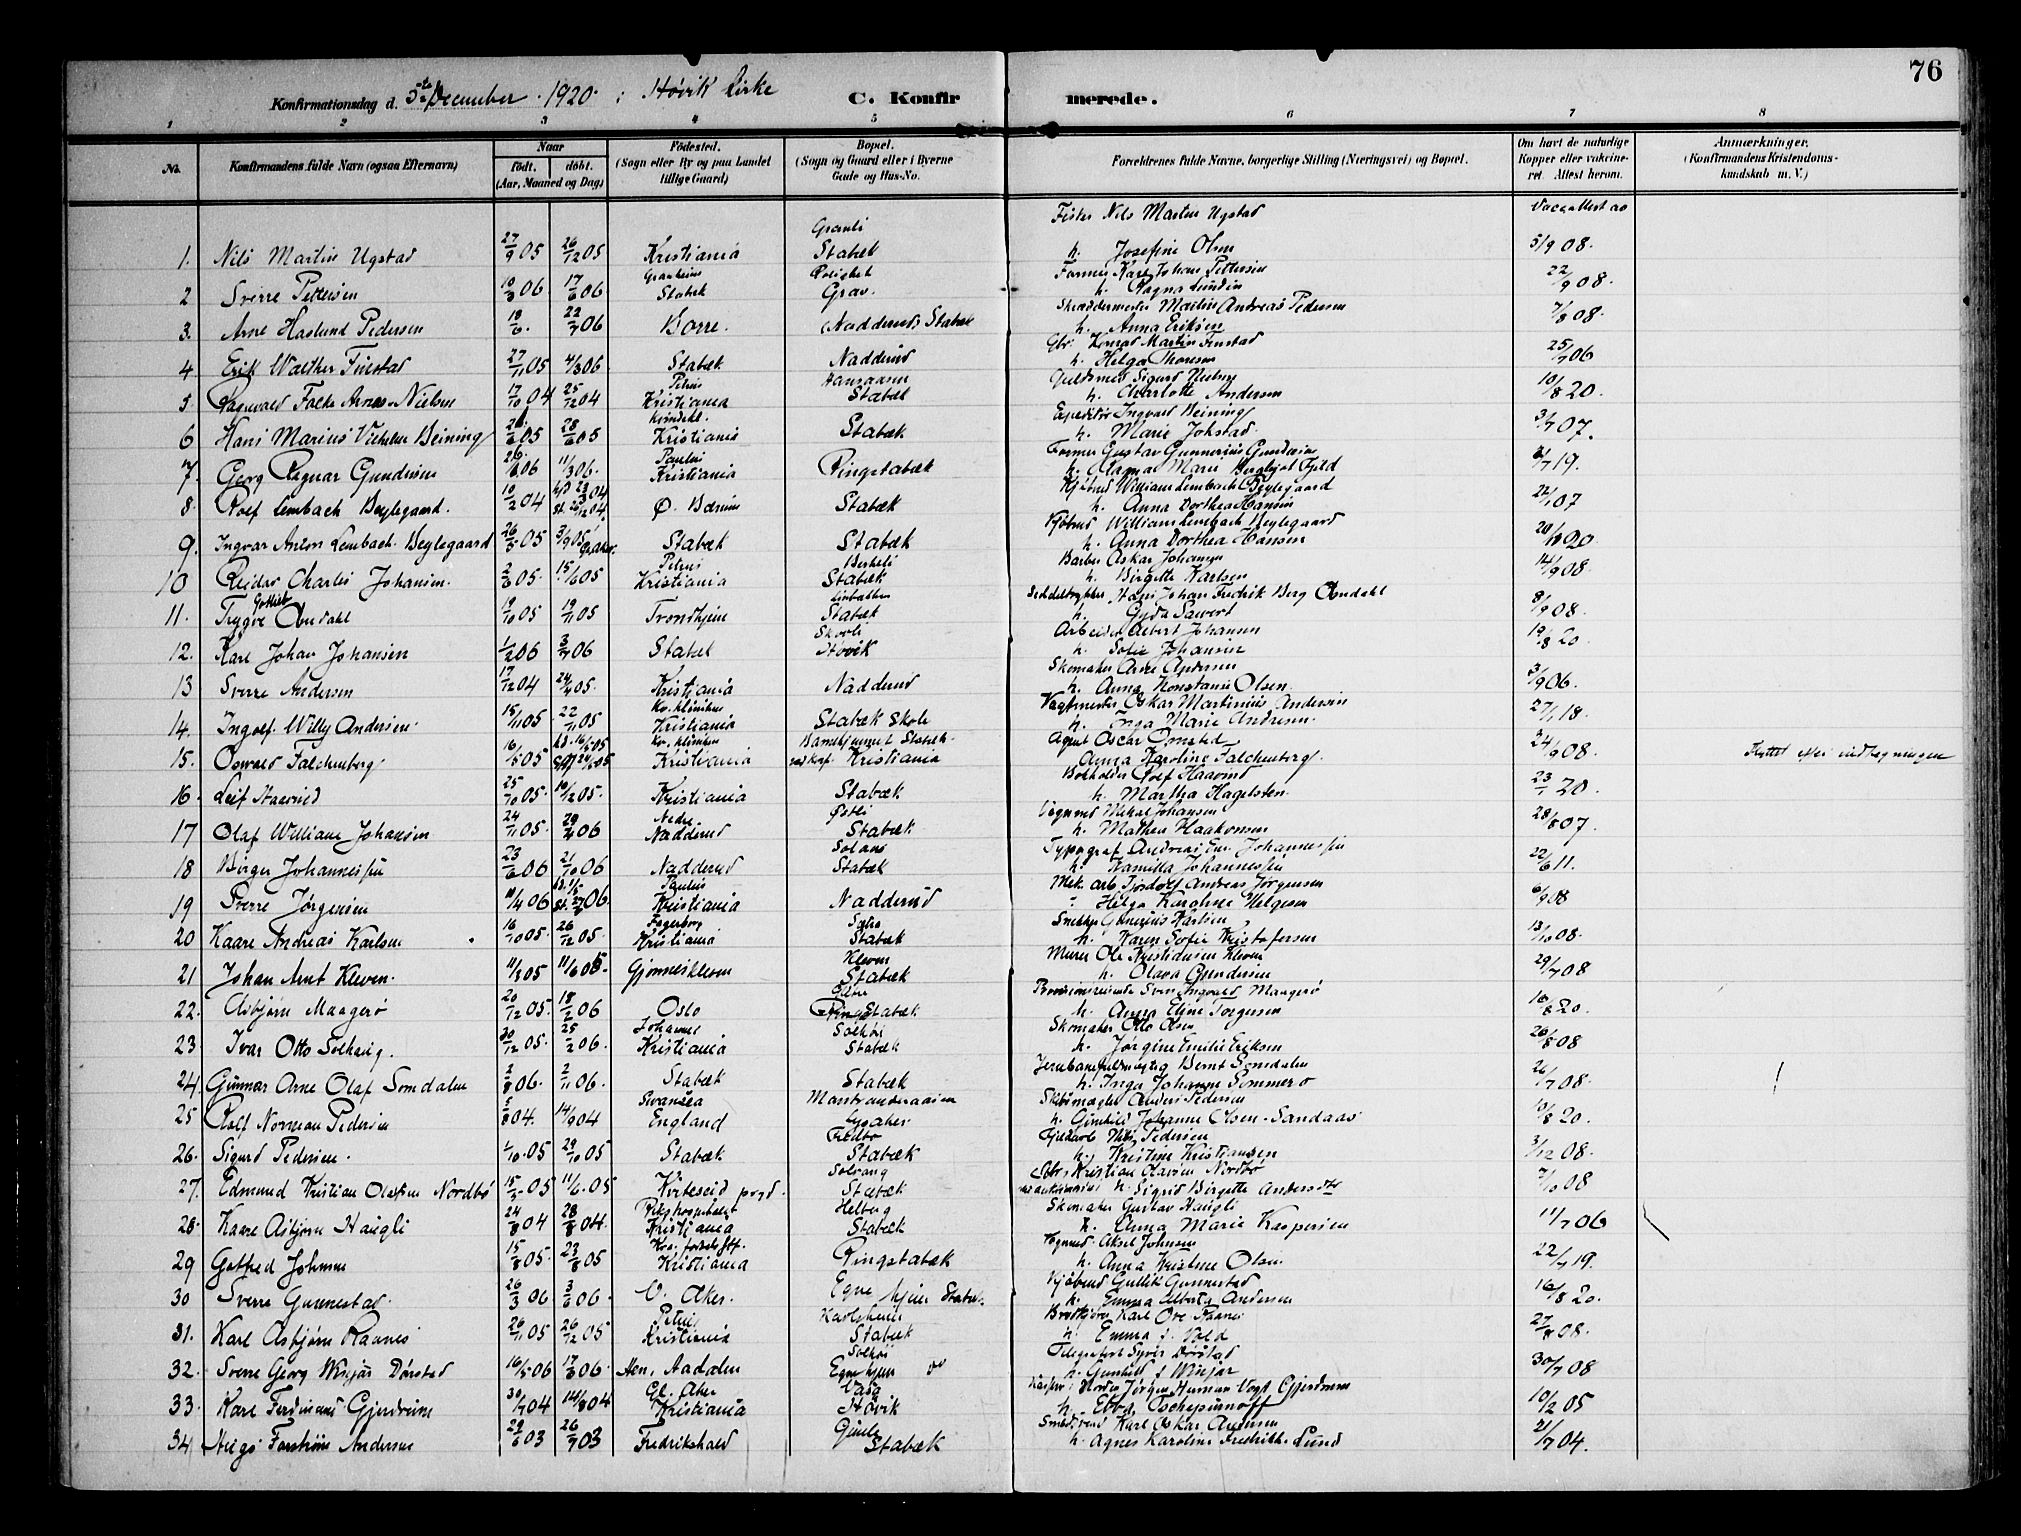 76
Konfirmationsdag d. 5te December 1920 i Høvik kirke C. Konfirmerede.
1 2 3 4 5 6 7 8
No. Konfirmandens fulde Navn (ogsaa Efternavn) Naar født. døbt. (Aar, Maaned og Dag) Fødested. (Sogn eller By og paa Landet tillige Gaard) Bopæl. (Sogn og Gaard eller i Byerne Gade og Hus-No. Forældrenes fulde Navne, borgerlige Stilling (Næringsvei) og Bopæl. Om havt de naturlige Kopper eller vakcineret. Attest herom. Anmærkninger. (Konfirmandens Kristendomskundskab m. V.)
1. Nils Martin Ugstad 27/9 05 26/12 05 Kristiania Granli Stabæk Fisker Nils Martin Ugstad h. Josefine Olsen 5/9 08.
2 Sverre Pettersen 10/3 06 17/6 06 Granheim Stabæk Grav. Former Karl Johan Pettersen h. Ragna Lundin 22/9 08.
3. Arne Haslund Pedersen 22/7 06 Borre. Nadderud, Stabæk Skræddermester Martin Andreas Pedersen h. Anna Eriksen 7/8 08.
4 Erik Walther Finstad 27/11 05 4/3 06 Stabæk Nadderud Konrad Martin Finstad h. Helga Thoresen 25/7 06
5. Ragnvald Falke Arnes-Nielsen 17/10 04 25/12 04 Petrus Kristiania Stabæk Guldsmed Sigurd h. Charlotte Andersen 10/8 20.
6 Hans Marius Vilhelm Beining 05 28/6 05 Kristiania Stabæk Expeditør Ingvard Beining h. Marie Jokstad. 3/7 07.
7. Georg Ragnar Gundersen 06 11/3 06. Paulus Kristiania Ringstabæk Former Gustav Gunnerius Gundersen h. Dagmar Marie Bergljot Fjeld 19.
8. Rolf Lembach Beylegaard. 10/2 04 Ø. Bærum Stabæk Kjøbmd William Lembach Beylegaard h. Anna Dorthea Hansen 22/1 07
9. Ingvar Anton Lembach-Beylegaard 26/5 05 3/9 05 Stabæk Stabæk Kjøbmd William Lembach Beylegaard h. Anna Dorthea Hansen 20
10 Reidar Charles Johansen. 2/6 05. 15/6 05 Petrus Kristiania Berheli Stabæk Barber Oskar Johansen h. Birgitte Karlsen 14/9 08
11. Trygve Gottlieb Omdahl 19/10 05 19/11 05 Trondhjem Stabæk Hans Johan Fredrik Berg Omdahl h. Gyda Sawert 8/9 08.
12. Karl Johan Johansen 1/2 06 3/7 06 Stabæk Skovli Høvik Arbeider Albert Johansen h. Sofie Johansen 19/8 20.
13 Sverre Andersen 17/12 04 24/4 05. Kristiania Nadderud Skomaker Arne Andersen h. Anna Konstanse Olsen. 3/9 06.
14. Ingolf Willy Andersen 15/11 05 22/11 05 Kv.klinikken Kristiania Stabæk Skole Vagtmester Oskar Martinius Andersen h. Inga Marie Andresen 27/1 18.
15. Oswald Falchenberg 16/5 05 Kv.klinikken Kristiania Barnehjemmet Stabæk Kristiania Agent Oscar Ornsted Anna Karoline Falchenberg 24/9 08. Flyttet efter indtegningen
16. Leif Haavind 25/10 05. 10/12 05. Kristiania Stabæk Bokholder Rolf Haavind h. Martha Hagelsten. 23/1 20
17 Olaf William Johansen 24/11 05. 06 Nedre Nadderud Østli Stabæk Vognmd Mikal Johansen h. Mathea Haakonsen 28/8 07.
18 Birger Johannessen 23/6 06 21/10 06 Nadderud Solaas Stabæk Typograf Andreas Johannessen h. Kamilla Johannessen 22/6 11.
19 Sverre Jørgensen 11/4 06 06 Paulus Kristiania Nadderud Mek. arb. Andreas Jørgensen Helga Karoline Helgesen 6/9 08
20 Kaare Andreas Karlsen 16/10 05. 26/12 05. Fagerborg Kristiania Stabæk Snekker Karlsen h. Karen Sofie Kristofersen 13/10 08.
21 Johan Arnt Kleven. 11/3 05 11/6 05 Gjønneskleven Kleven Stabæk Murer Ole Kristiansen Kleven h. Olava Gundersen 29/7 08
22. Asbjørn Maagerø 20/12 05. 18/2 06 Oslo Ringstabæk Provisionsreisende Sven Ingvald Maagerø h. Anna Eline Torgersen 10/8 20.
23. Ivar Otto Solhaug. 30/12 05. 25/2 06. Johannes Kristiania Solhøi Stabæk Skomaker Otto Olsen h. Jørgine Emilie Eriksen 26/8 08
24. Gunnar Arne Olaf Somdalen 2/8 06. 2/11 06. Stabæk Stabæk Bernt Somdalen h. Inga Johanne Sommerø 26/7 08.
25 Rolf Norman Pedersen 5/8 04. 14/9 04 Swansea England Skibsmægler Anders Pedersen h. Gunhild Johanne Olsen-Sandaas 10/8 20.
26. Sigurd Pedersen. 1/10 05 29/10 05 Stabæk Fredbo Stabæk Nils Pedersen h. Kristine Kristiansen 3/12 08.
27. Edmund Kristian Olafsen Nordbø 15/5 05 11/6 05 Kirteseid Solvang Stabæk Kristian Olavsen Nordbø h. Sigrid Birgitte Andersdtr 7/10 08
28. Kaare Asbjørn Haugli 24/8 04 28/8 04. Rikshospitalet Kristiania Helberg Stabæk Skomaker Gustav Haugli h. Anna Marie Kaspersen 11/7 06
29 Gotfred Johnsen 15/8 05. 23/8 05 Kristiania Ringstabæk Vognmd. Aksel Johnsen h. Anna Kristine Olsen 22/7 19.
30 Sverre Gunnestad. 26/3 06 3/6 06. V. Aker. Egne hjem Stabæk Kjøbmd Gullik Gunnestad h. Emma Alberta Andersen 16/8 20.
31. Karl Asbjørn Raanes 26/11 05 26/12 05 Petrus Kristiania Karlsheim Stabæk Karl Ove Raanes h. Emma f. Vold 27/8 08.
32. Sverre Georg Winjar Dørstad 16/5 06 17/8 06. Hen, Aadalen Solhøi Egne hjem Telegrafist Syver Dørstad h. Gunhild f. Winjar 30/7 08
33. Karl Ferdinand Gjerdrum 30/7 04 14/8 04 Gl. Aker Kristiania Vasa Høvik Jørgen Herman Vogt Gjerdrum h. Ebba Tschepurnoff 10/2 05
34 Hugo Forström Andersen 29/6 03 26/7 03 Fredrikshald Gimle Stabæk Karl Oskar Andersen h. Agnes Karoline Fredrikke Lund 21/7 04.